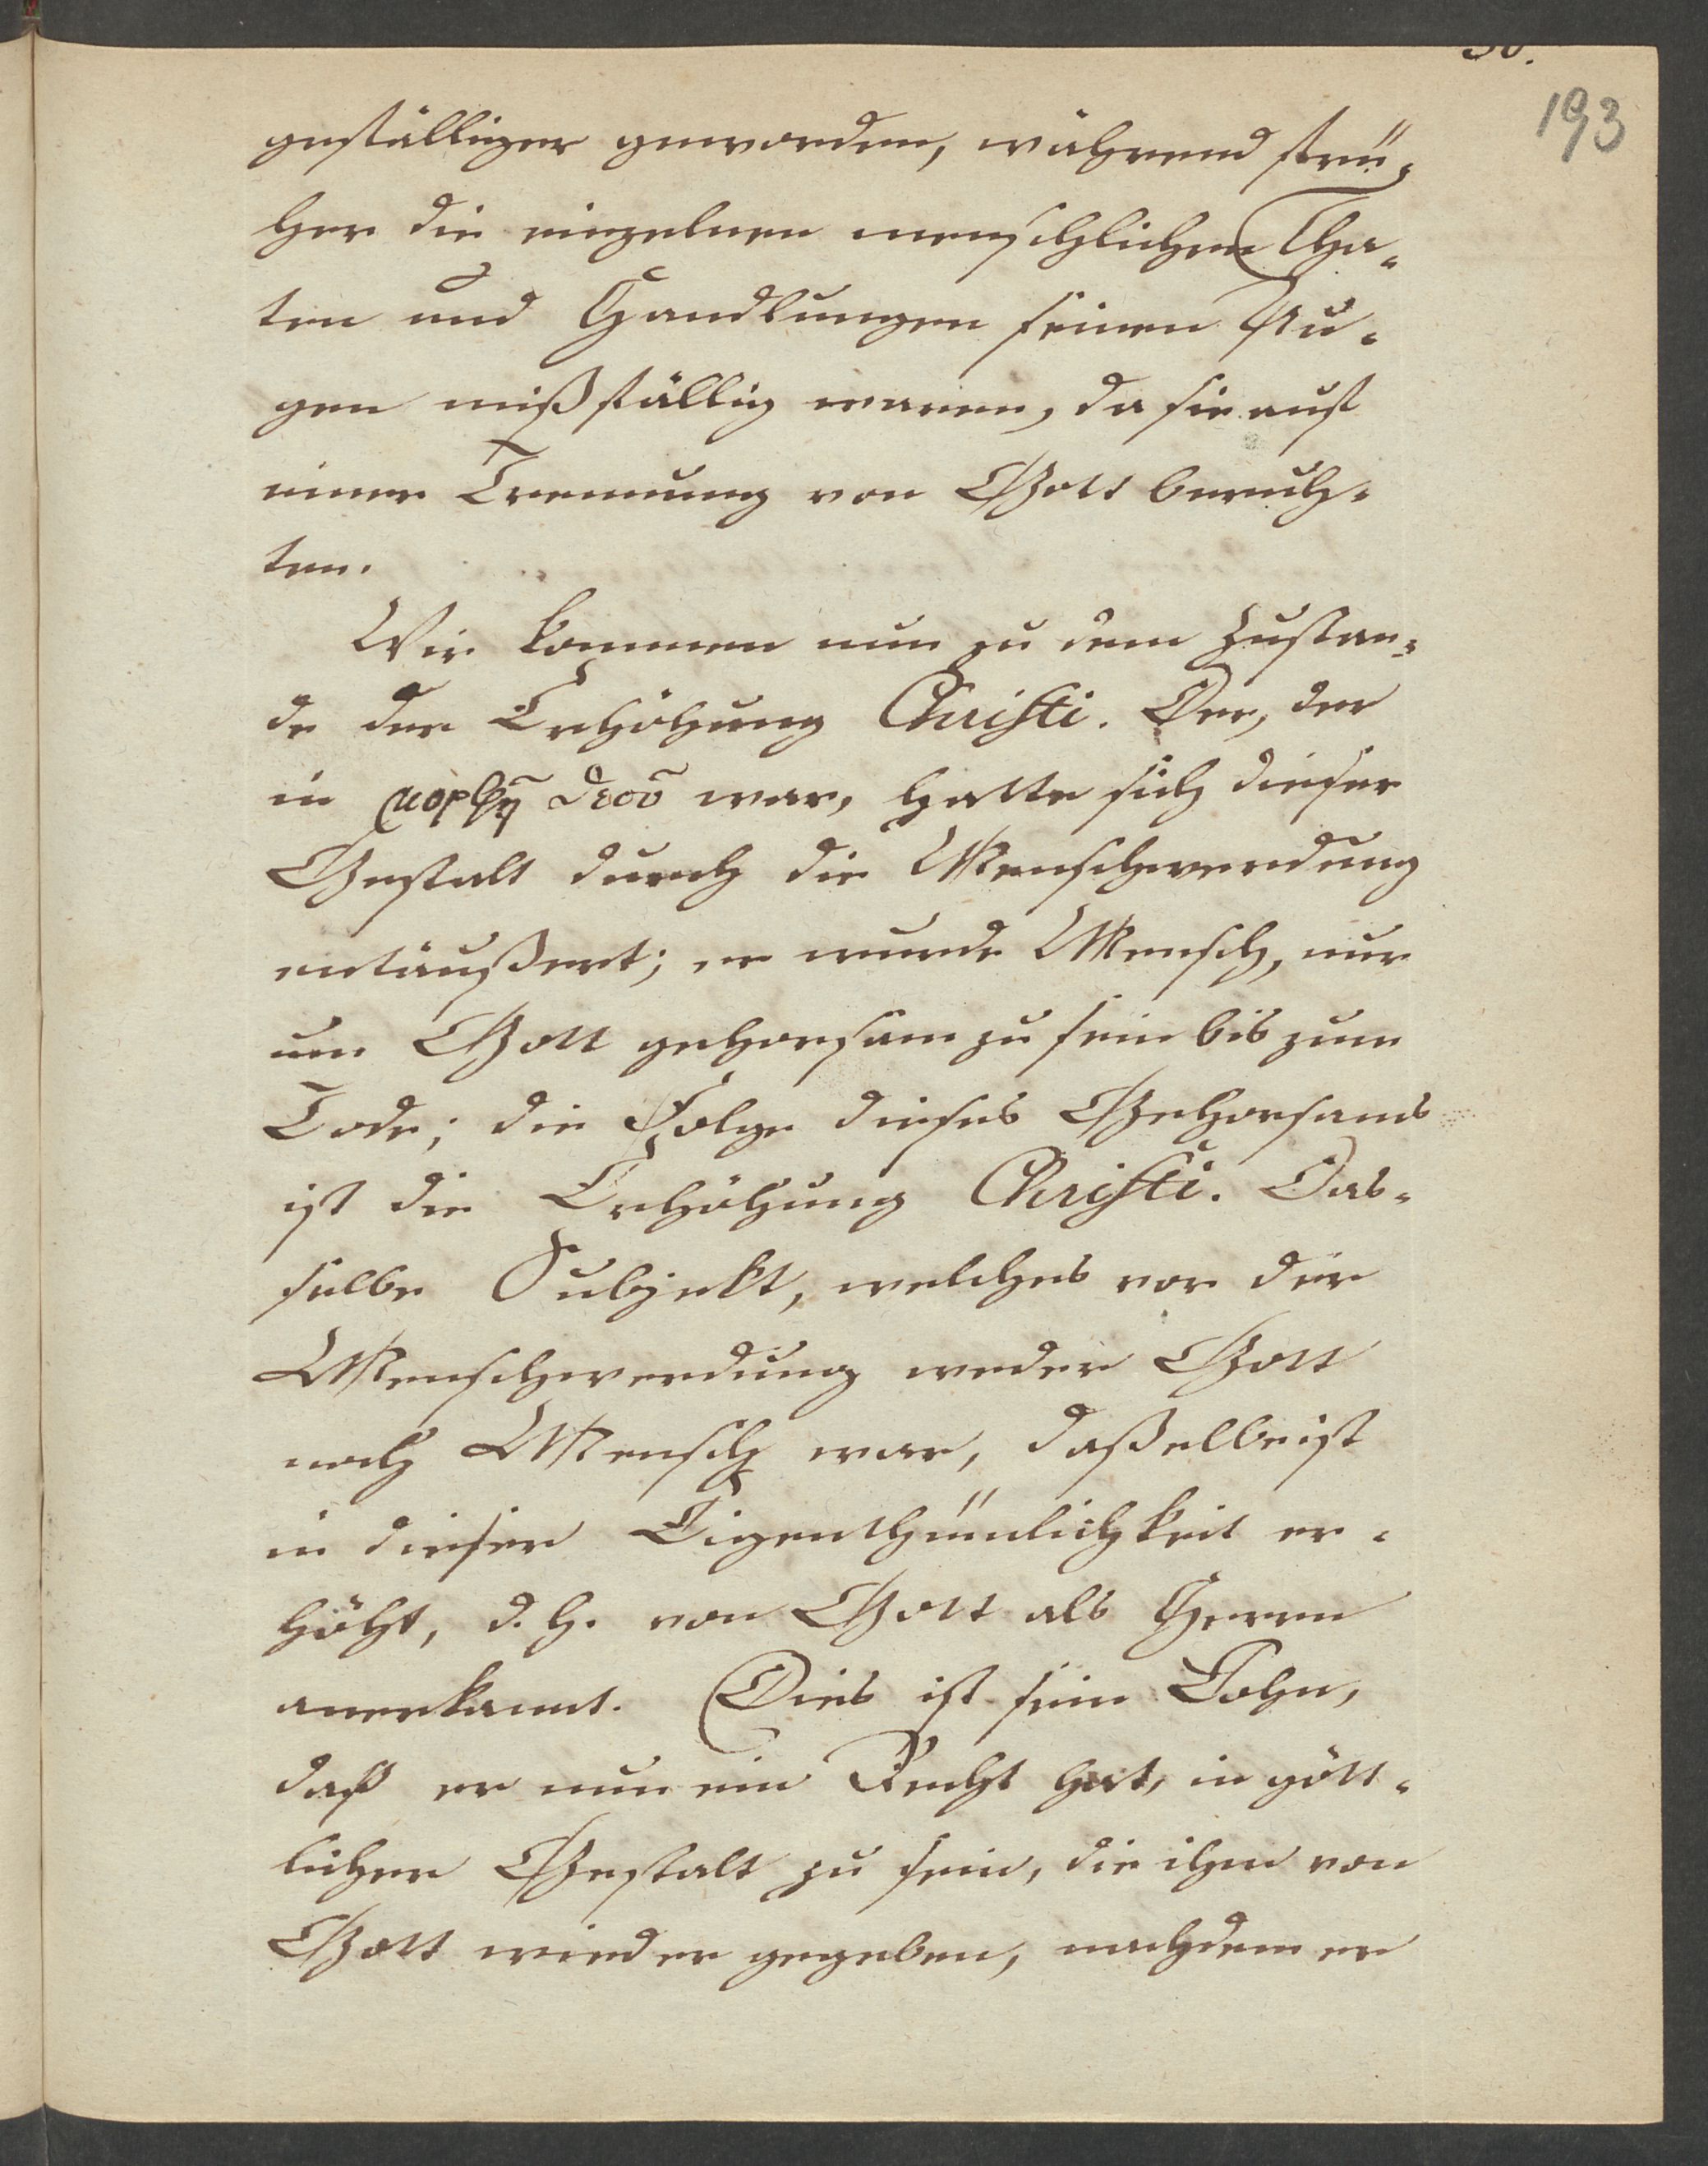 193
gefälliger geworden, während frü-
her die einzelnen menschlichen Tha-
ten und Handlungen seinen Au-
gen mißfällig waren, da sie auf
einer Trennung von Gott beruh-
ten.
Wir kommen nun zu dem Zustan-
de der Erhöhung Christi. Der, der
in μορφῇ θεοῦ war, hatte sich dieser
Gestalt durch die Menschwerdung
entäußert; er wurde Mensch, nur
um Gott gehorsam zu sein bis zum
Tode; die Folge dieses Gehorsams
ist die Erhöhung Christi. Das-
selbe Subjekt, welches vor der
Menschwerdung weder Gott
noch Mensch war, daßelbe ist
in dieser Eigenthümlichkeit er-
höht, d. h. von Gott als Herrn
anerkannt. Dies ist sein Lohn,
daß er nun ein Recht hat, in gött-
licher Gestalt zu sein, die ihm von
Gott wieder gegeben, nachdem er